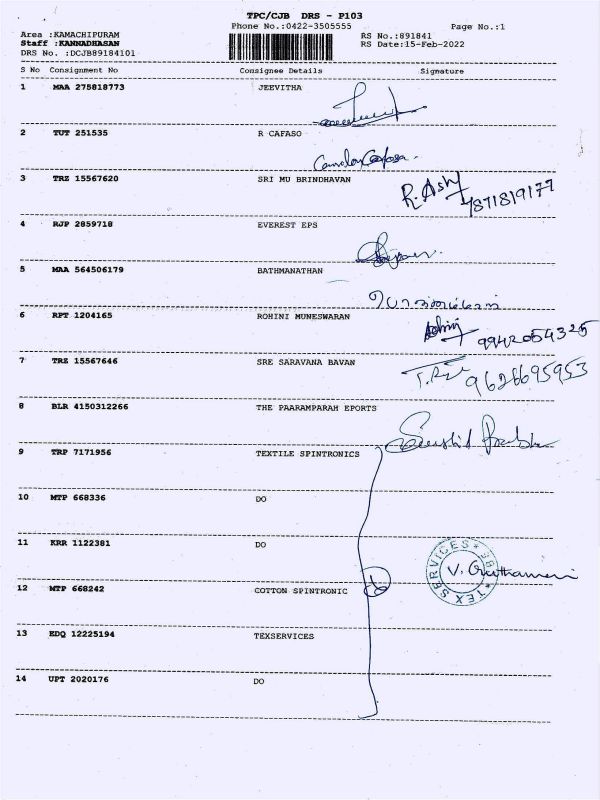 TPC/CJB DRS - P103
Phone No.:0422-3505555
Page No.:1
Area :KAMACHIPURAM
RS No.:891841
Staff :KANNADHASAN
RS Date:15-Feb-2022
DRS No. :DCJB89184101
S No Consignment No Consignee Details Signature
1 MAA 275818773 JEEVITHA
2 TUT 251535 R CAFASO
3 TRZ 15567620 SRI MU BRINDHAVAN
R. Ash 7871819177
4 RJP 2859718 EVEREST EPS
5 MAA 564506179 BATHMANATHAN
6 RPT 1204165 ROHINI MUNESWARAN
9942054325
7 TRZ 15567646 SRE SARAVANA BAVAN
9626695953
8 BLR 4150312266 THE PAARAMPARAH EPORTS
9 TRP 7171956 TEXTILE SPINTRONICS
10 MTP 668336 DO
11 KRR 1122381 DO
JB TEX SERVICES
12 MTP 668242 COTTON SPINTRONIC
13 EDQ 12225194 TEXSERVICES
14 UPT 2020176 DO